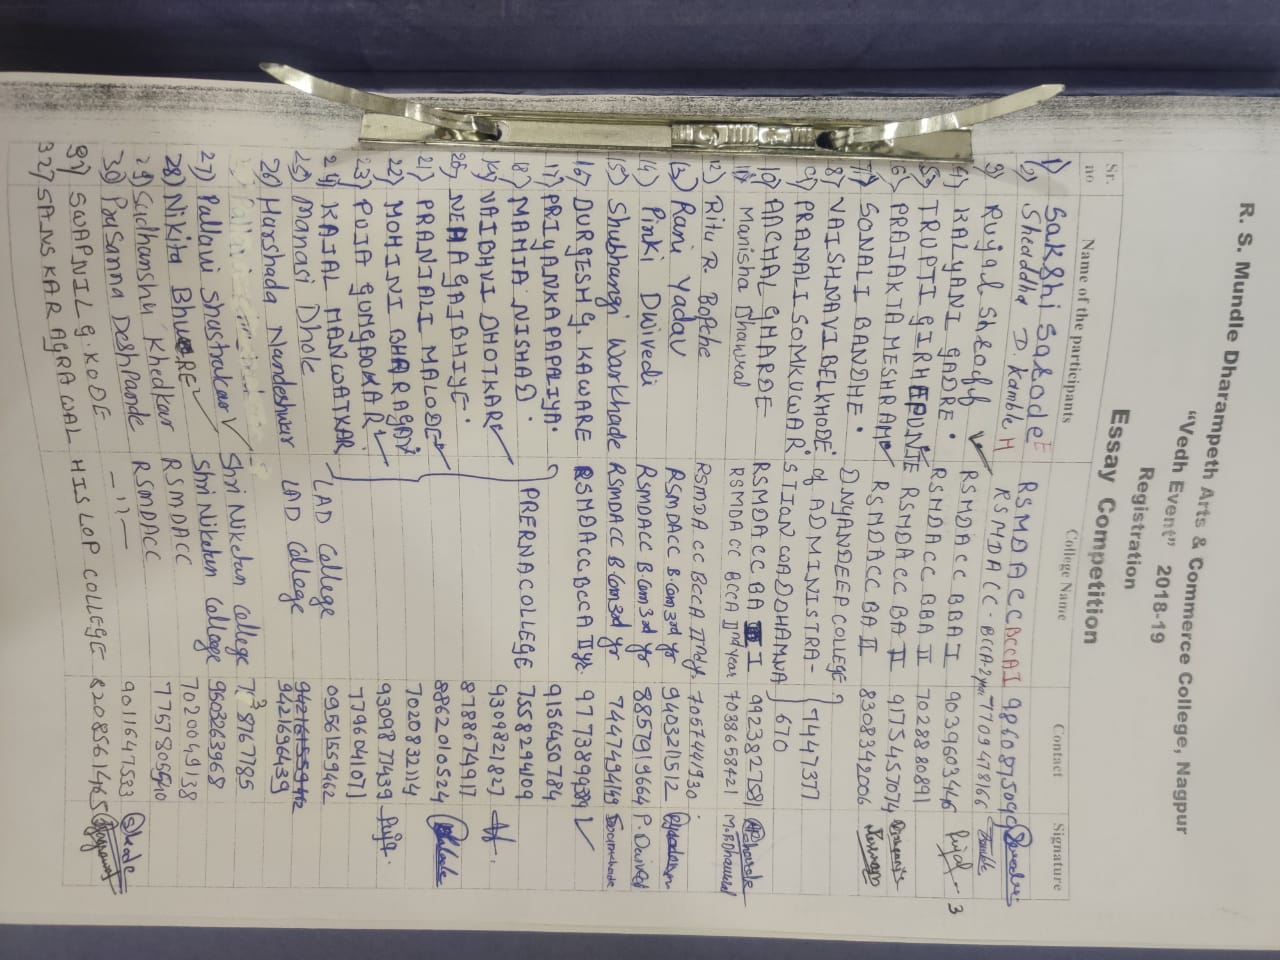 R. S. Mundle Dharampeth Arts & Commerce College, Nagpur
"Vedh Event" 2018-19
Registration
Essay Competition
Sr. no Name of the participants College Name Contact Signature
1) Sakshi Sarode E RSMDACC BCCAI
2) Sheaddha D. Kamble H RSMDACC-BCCA-2
3) Rujal Shroff RSMDACC BBAI 9039603446
4) KALYANI GADRE. RSMDACC BBA II 7028880891
5) TRUPTI GIRHEPUNJE RSMDACC BA II 9175457074
6) PRAJAKTA MESHRAM RSMDACC BA II 8308342006
7) SONALI BANDHE. DNYANDEEP COLLEGE
8) VAISHNAVI BELKHODE of ADMINISTRA- 7447377
9) PRANALI SOMKUWAR STION WADDHAMNA 670
10) AACHAL GHARDE RSMDACC BA I 9923827581
11) Manisha Dhawral RSMDACC BCCA IInd year 7038658421
12) Ritu R. Bopche RSMDACC BCCA IIndy. 7057441930
13) Rani Yadav RSMDACC B.Com 3rd yr 940321512
14) Pinki Dwivedi RSMDACC B.Com 3rd yr 8857919664 P. Dwivedi
15) Shubhangi Warkhade RSMDACC B.Com 3rd yr 7447494149
16) DURGESH G. KAWARE RSMDACC BCCA II
17) PRIYANKA PAPALIYA. 9156450784
18) MAMTA NISHAD. PRERNA COLLEGE 7558294109
19) VAIBHVI DHOTKAR 9309821827
20) NEHA GAIBHIYE. 8788674917
21) PRANJALI MALODE 8862010524
22) MOHINI BHARAGAT 7020832114
23) PUJA GUMGAOKAR 9309877439 Puja
24) KAJAL MANWATKAR LAD College 7796041071
25) Manasi Dhole LAD College 09561559462
26) Harshada Nandeshwar 9421696439
Shri Niketan College
27) Pallavi Shastrakar Shri Niketan College 9603263968
28) Nikita BhURE RSMDACC 7020049138
29) Sudhanshu Khedkar RSMDACC
30) Prasanna Deshpande -"-
31) SWAPNIL G. KODE HISLOP COLLEGE 9011647533
32) SANSKAR AGRAWAL 8208561465